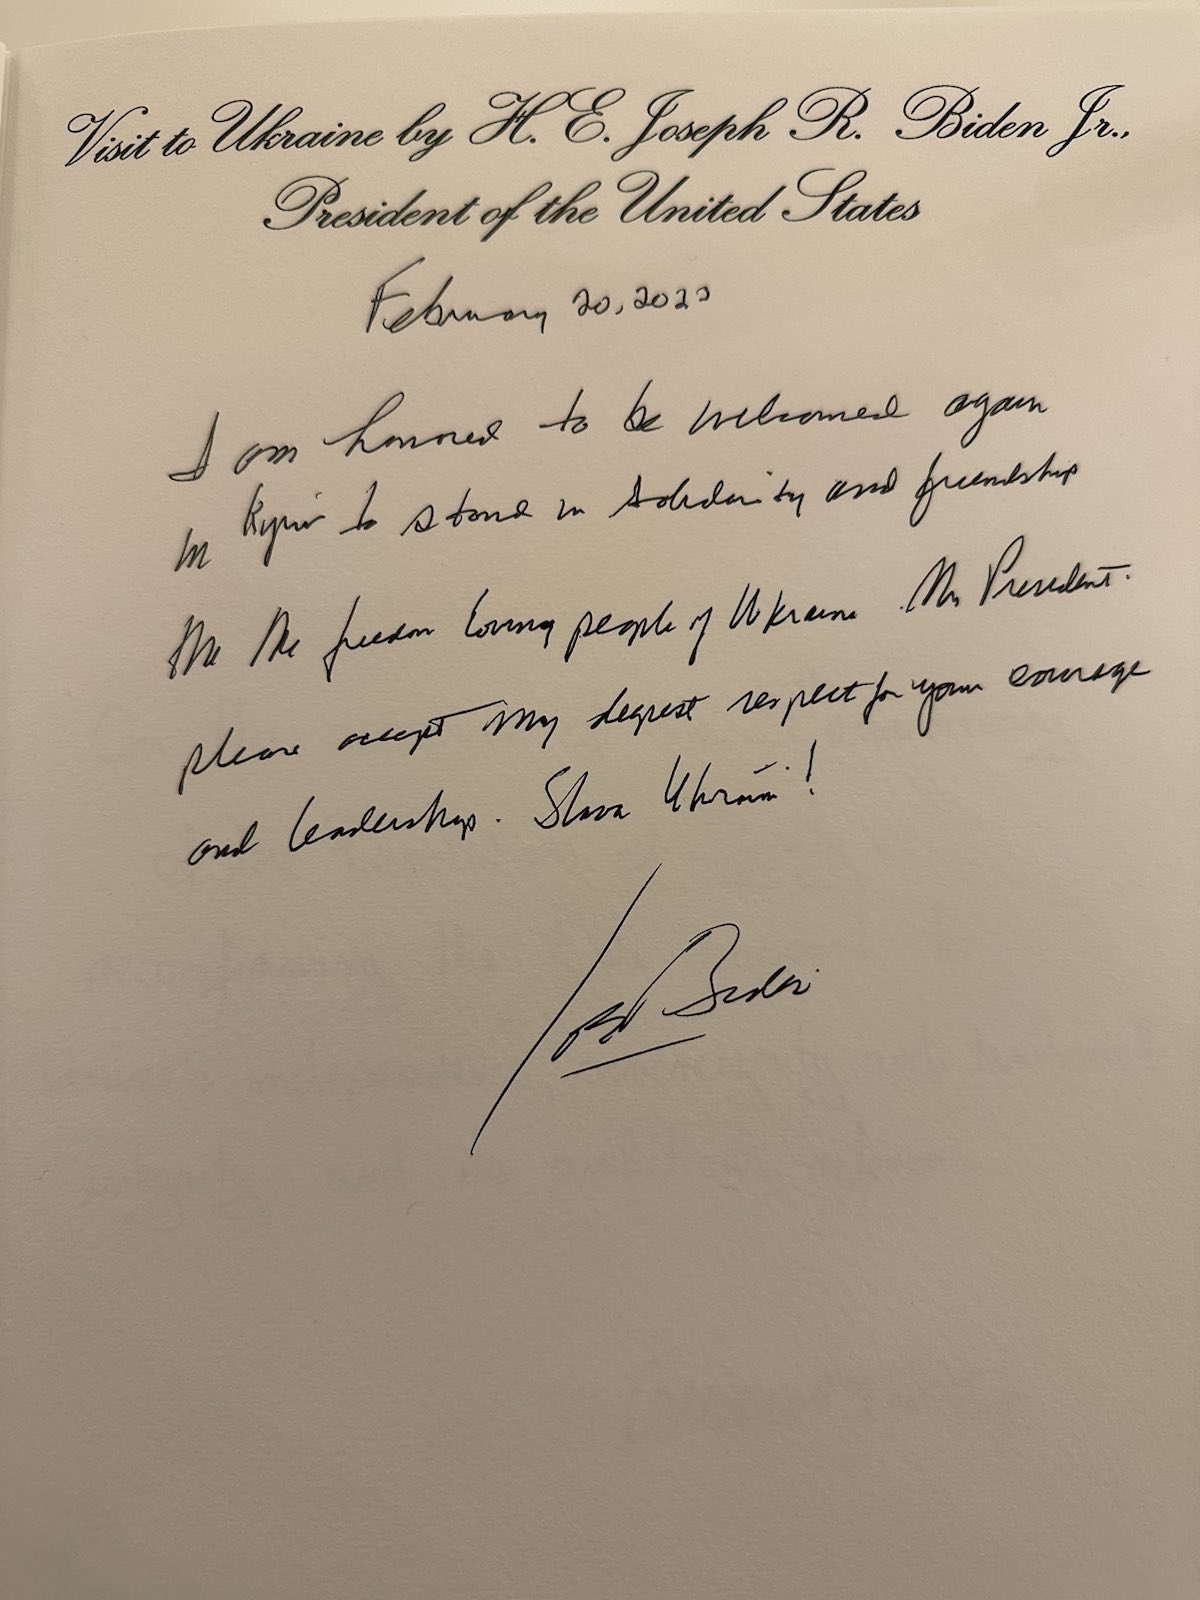 Visit to Ukraine by H. E. Joseph R. Biden Jr.,
President of the United States
February 20, 2023
I am honored to be welcomed again
in Kyiv to stand in solidarity and friendship
the freedom loving people of Ukraine. Mr. President.
please accept my deepest respect for your courage
and leadership. Slava Ukraini!
Joe Biden